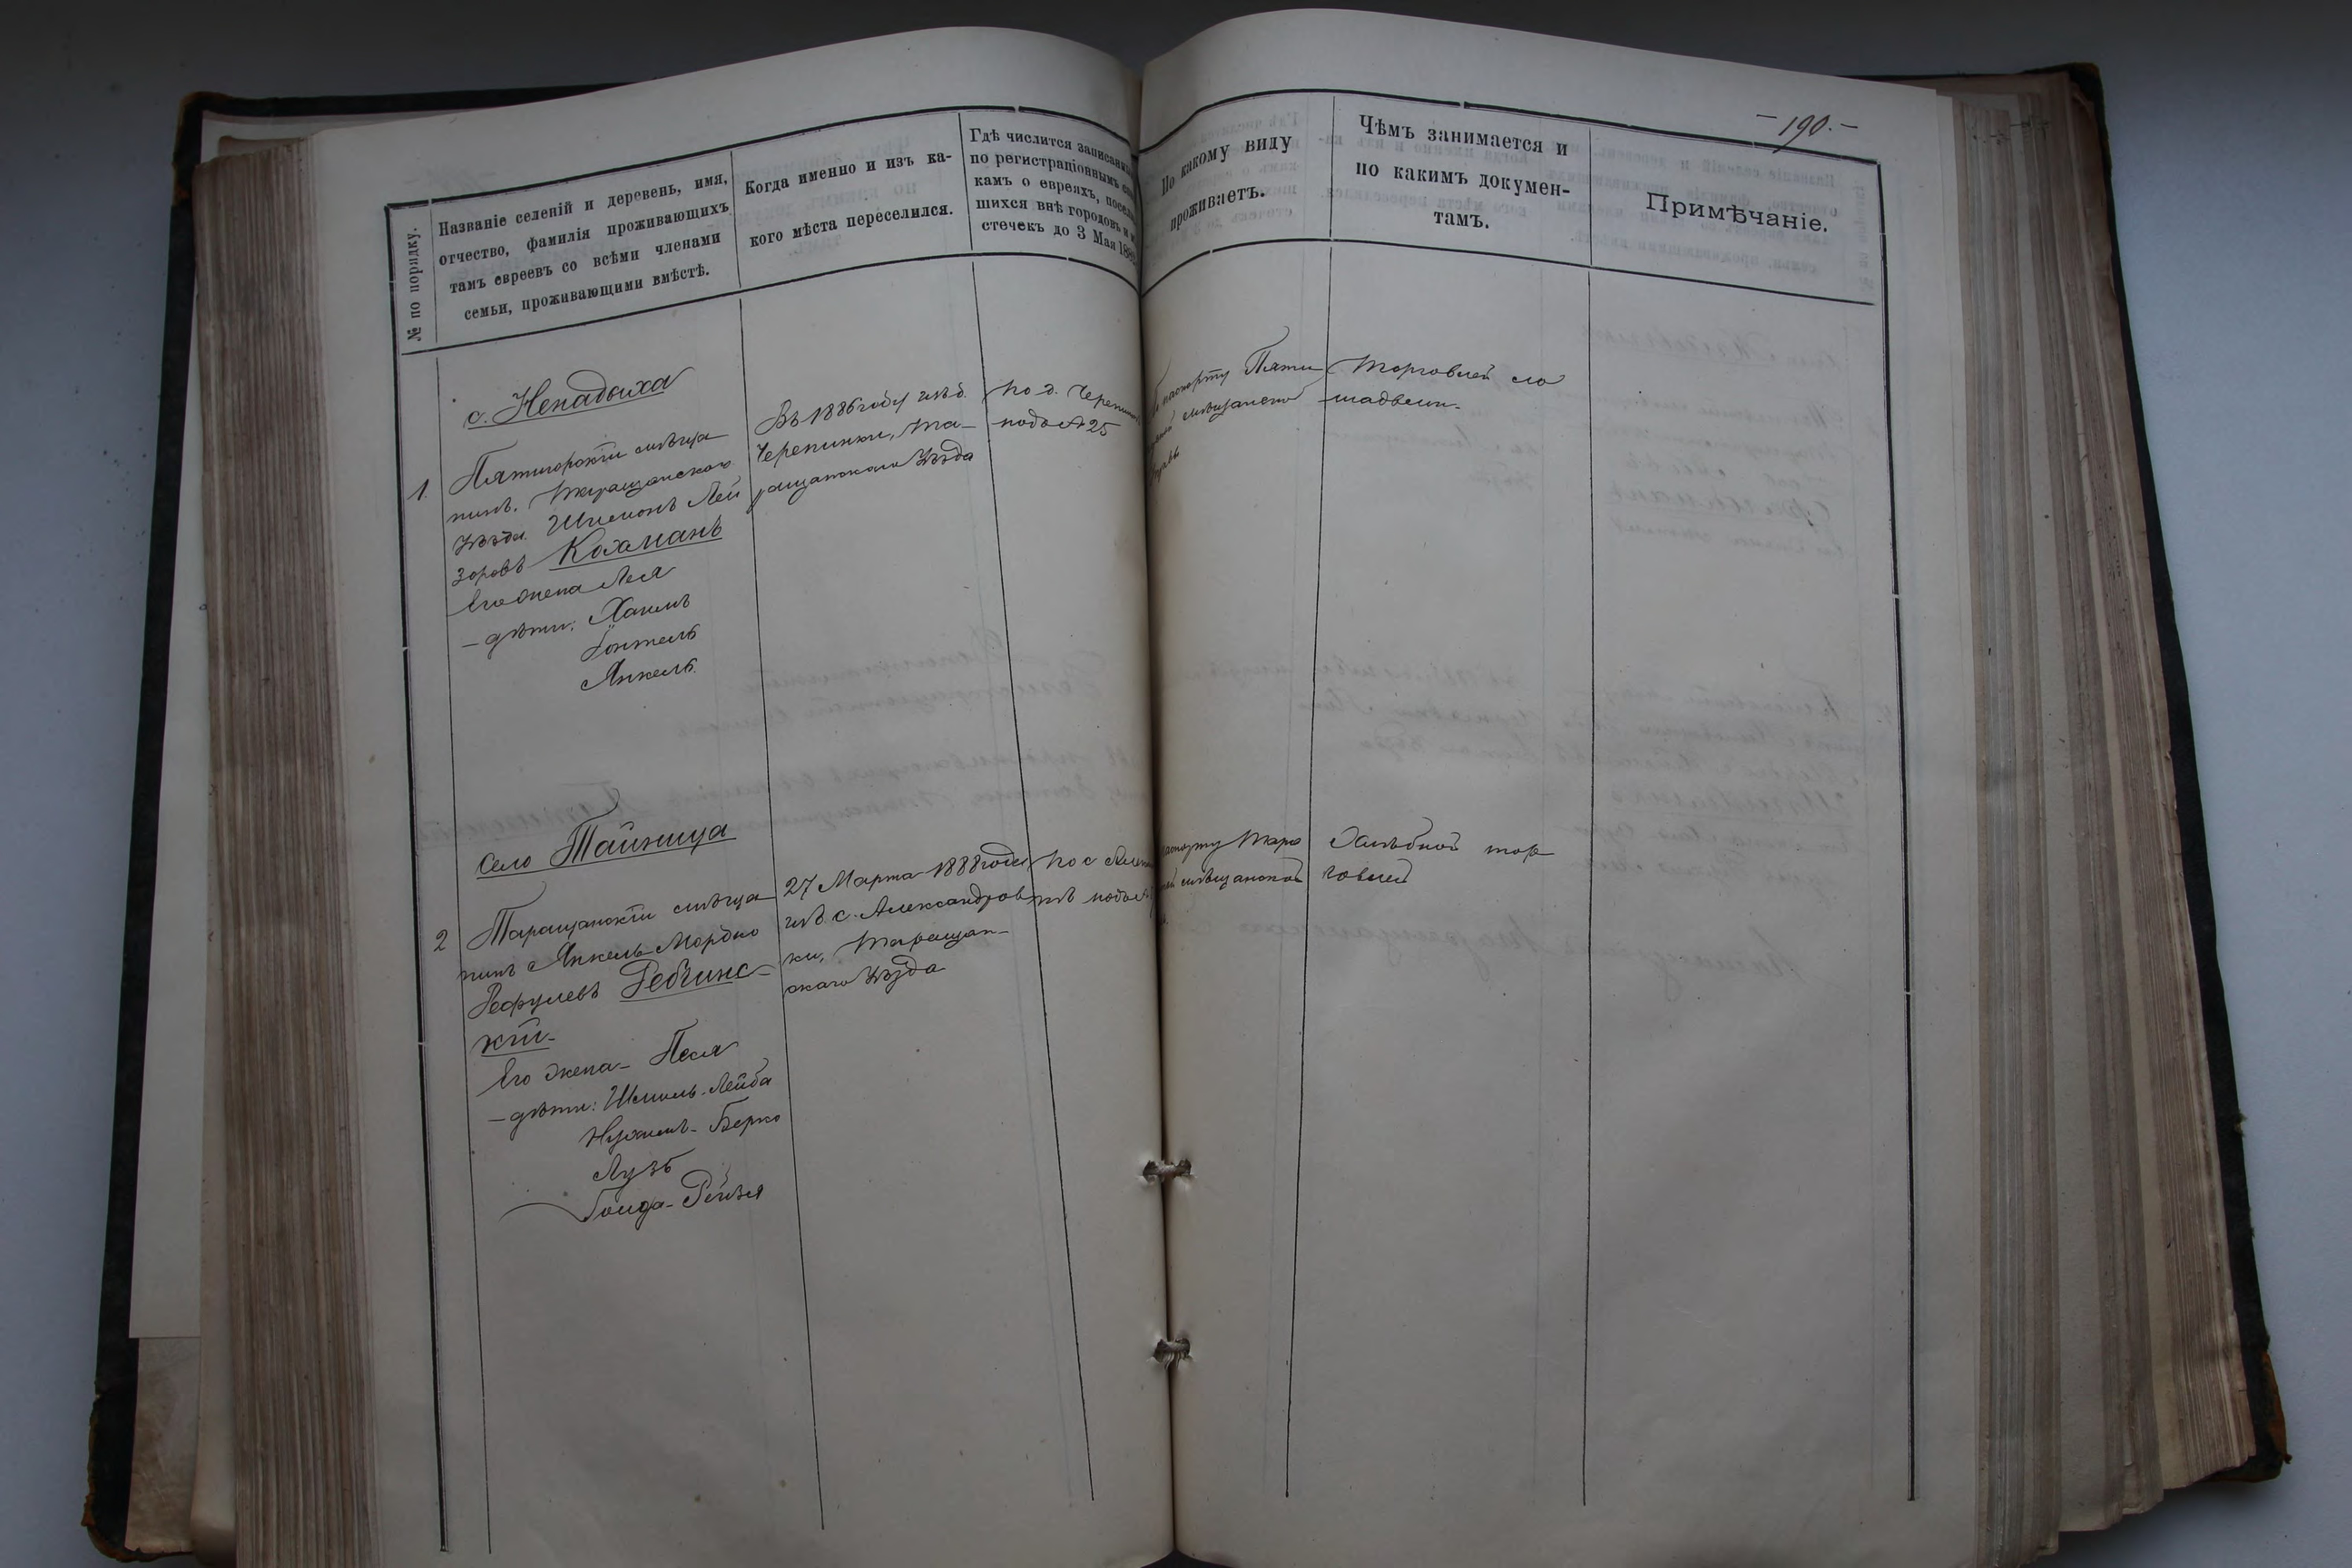 - 190. -
№ по порядку.
Названіе селеній и деревень, имя,
отчество, фамилія проживающихъ
тамъ евреевъ со всѣми членами
семьи, проживающими вмѣстѣ.
Когда именно и изъ ка-
кого мѣста переселился.
Гдѣ числится записаннымъ
по регистраціоннымъ
камъ о евреяхъ,
шихся внѣ городовъ и
стечекъ до 3 Мая
По какому виду
проживаетъ.
Чѣмъ занимается и
по какимъ докумен-
тамъ.
Примѣчаніе.
с. Ненадыха
1.
Пятигорскій мѣща
нинъ, Таращанскаго
уѣзда Шимонъ Лей
зоровъ Кохманъ
Его жена Лея
- дѣти: Хаимъ
Янкель.
Въ 1886 году изъ д.
Черепинки, Та-
ращанскаго уѣзда
по д.
подъ № 25
паспорту Пяти
мѣщанской
Торговлей ло
шадьми.
село Тайница
2
Таращанскій мѣща
нинъ Янкель-Мордко
Рефулевъ Ребчинс-
кій-
Его жена - Песя
- дѣти: Шмиль-Лейба
Нухимъ-Берко
Лузъ
Голда-Рейзя
27 Марта 1888 года
изъ с. Александров
ки, Таращан-
скаго уѣзда
по с
подъ №
паспорту Тара
мѣщанской
Хлѣбной тор
говлей